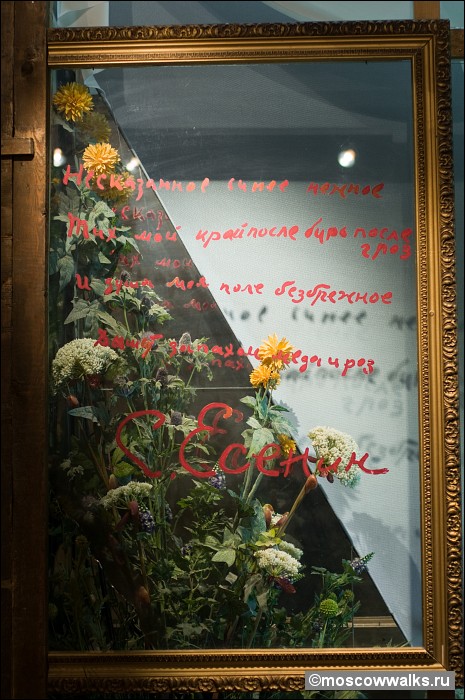 Несказанное синее нежное
Тих мой край после бурь после
гроз
И душа моя поле безбрежное
Дышит запахом меда и роз
С. Есенин
©moscowwalks.ru